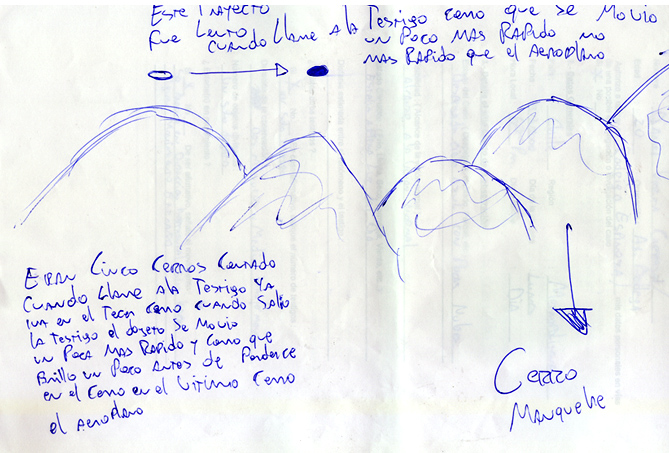 Este Trayecto
fue Lento
cuando llame a la Testigo como que se Movio
un Poco MAS RAPido no
MAS RAPido que el AeroPlano
Eran Cinco Cerros Contado
Cuando llame a la Testigo Ya
iva en el Tecer cerro cuando Salio
la Testigo el obgeto Se Movio
un Poca MAS RaPido y como que
Brillo un Poco Antes de Perderce
en el Cerro en el Ultimo Cerro
el AeroPlano
Cerro
Manquehe